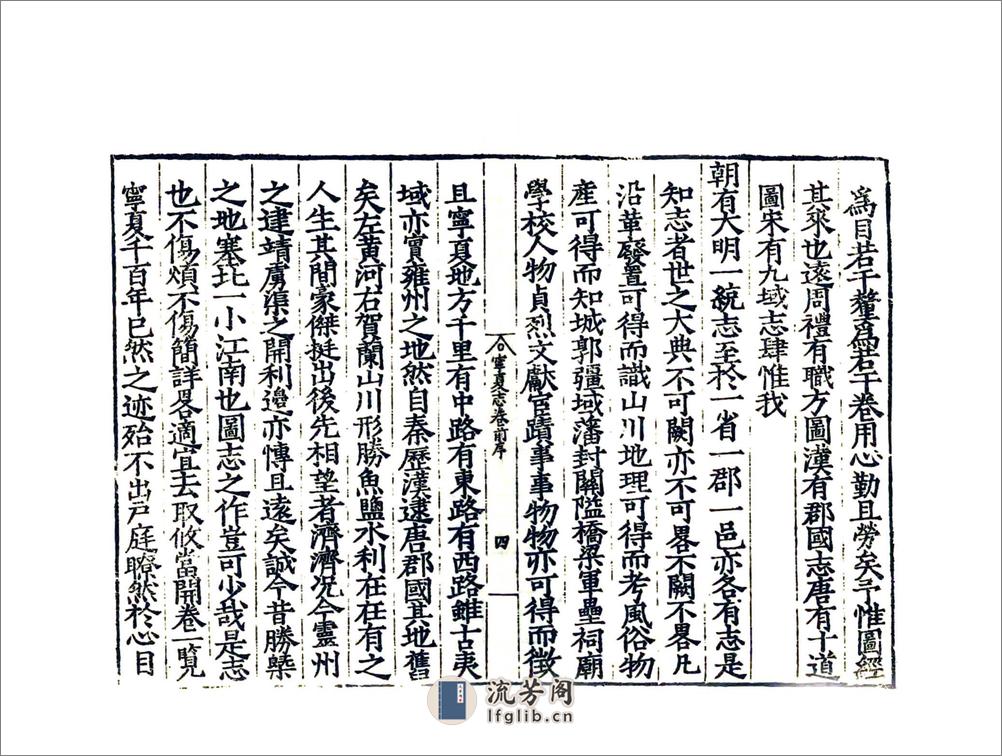 為目若干釐為若干卷用心勤且勞矣予惟圖經
其來也遠周禮有職方圖漢有郡國志唐有十道
圖宋有九域志肆惟我
朝有大明一統志至於一省一郡一邑亦各有志是
知志者世之大典不可闕亦不可畧不闕不畧凡
沿革廢置可得而識山川地理可得而考風俗物
產可得而知城郭疆域藩封關隘橋梁軍壘祠廟
學校人物貞烈文獻宦蹟事事物物亦可得而徵
寧夏志卷前序 四
且寧夏地方千里有中路有東路有西路雖古夷
域亦賞雍州之地然自秦歷漢逮唐郡國其地舊
矣左黃河右賀蘭山川形勝魚鹽水利在在有之
人生其間家傑挺出後先相望者濟濟况今靈州
之建靖虜渠之開利邊亦慱且遠矣誠今昔勝槩
之地塞北一小江南也圖志之作豈可少哉是志
也不傷煩不傷簡詳畧適宜去取攸當開卷一覽
寧夏千百年已然之迹殆不出戸庭瞭然於心目
流芳阁
lfglib.cn